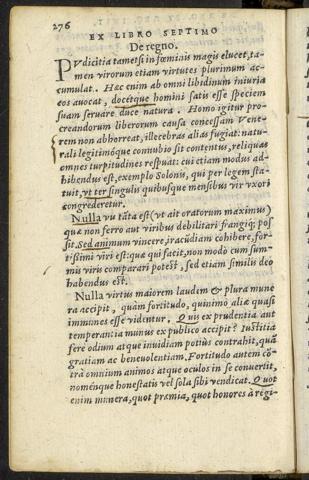 276
EX LIBRO SEPTIMO
De regno.
PVdicitia tametsi in fœminis magis elucet, ta-
men virorum etiam virtutes plurimum ac-
cumulat. Hæc enim ab omni libidinum iniuria
eos auocat, docetque homini satis esse speciem
suam seruare duce natura. Homo igitur pro-
creandorum liberorum causa concessam Vene-
rem non abhorreat, illecebras alias fugiat: natu-
rali legitimóque connubio sit contentus, reliquas
omnes turpitudines respuat: cui etiam modus ad-
hibendus est, exemplo Solonis, qui per legem sta-
tuit, vt ter singulis quibusque mensibus vir vxori
congrederetur.
Nulla vis tãta est (vt ait oratorum maximus)
quæ non ferro aut viribus debilitari frangíq; pos
sit. Sed animum vincere, iracūdiam cohibere, for-
tissimi viri est: quæ qui facit, non modo cum sum-
mis viris comparari potest, sed etiam similis deo
habendus est.
Nulla virtus maiorem laudem & plura mune
ra accipit, quàm fortitudo, quinimo aliæ quasi
immunes esse videntur. Quis ex prudentia aut
temperantia munus ex publico accipit? Iustitia
ferè odium atque inuidiam potiùs contrahit, quã
gratiam ac beneuolentiam. Fortitudo autem cõ-
trà omnium animos atque oculos in se conuertit,
noménque honestatis vel sola sibi vendicat. Quot
enim munera, quot præmia, quot honores à regi-